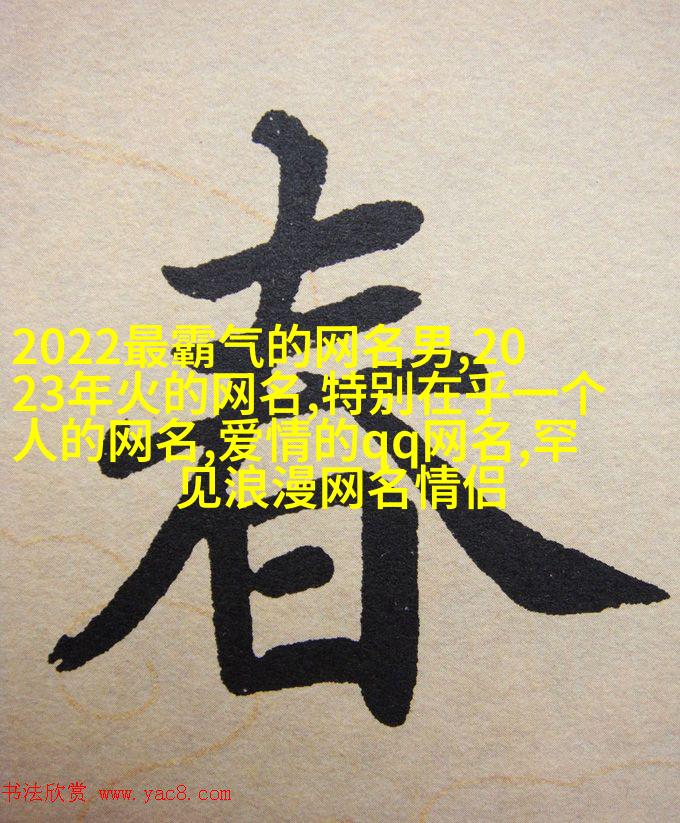 春
2022最霸气的网名男,20
23年火的网名,特别在乎一个
人的网名,爱情的qq网名,罕
见浪漫网名情侣
书法欣赏 www.yac8.com